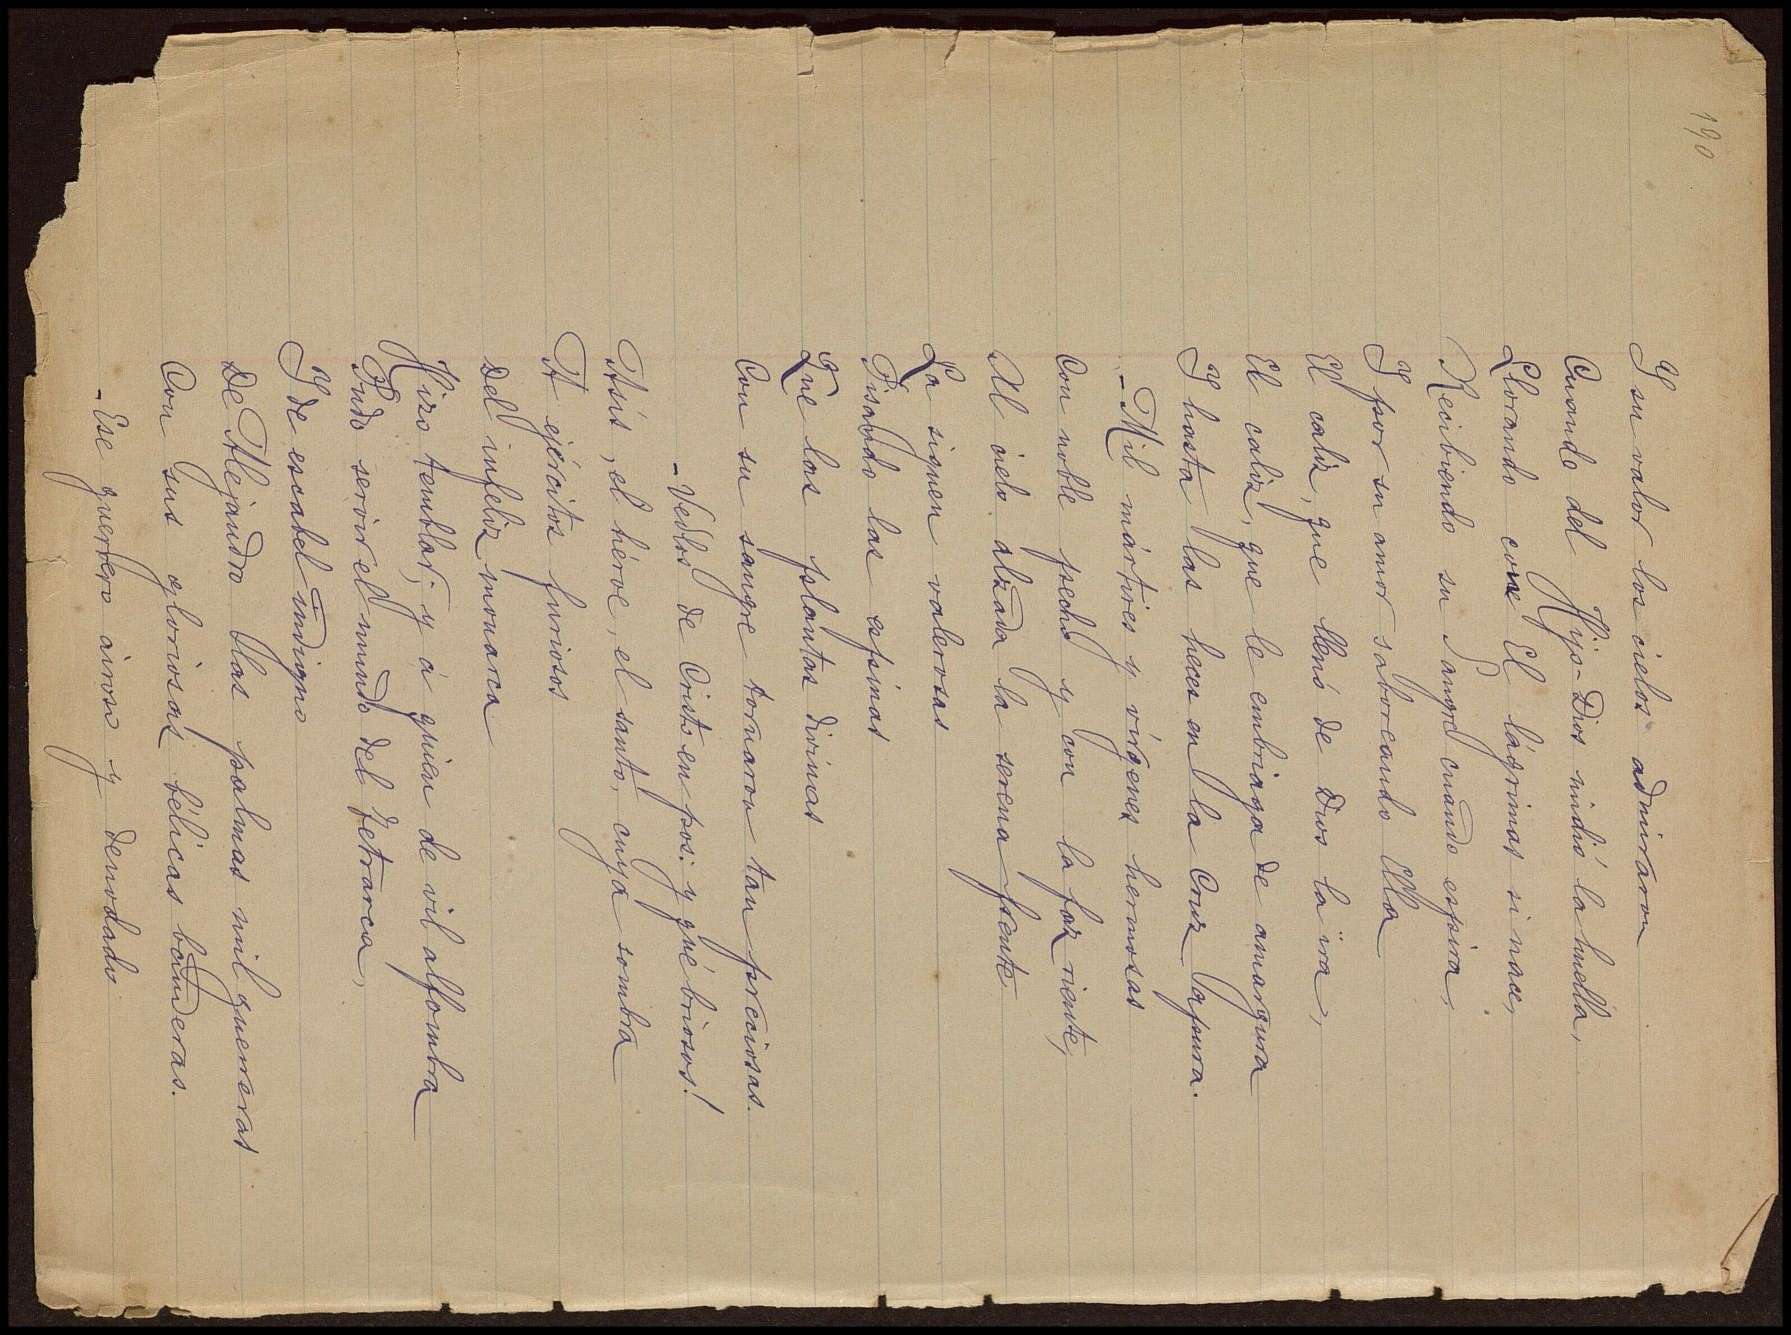 190
Y su valor los cielos admiraron
Cuando del Hijo-Dios rindió la huella,
Llorando con El lágrimas si nace,
Recibiendo su Sangre cuando espira,
Y por su amor saboreando Ella
El caliz, que llenó de Dios la ira,
El caliz, que le embriaga de amargura
Y hasta las heces en la Cruz apura.
- Mil mártires y vírgenes hermosas
Con noble pecho y con la faz riente,
Al cielo alzada la serena frente
La siguen valerosas
Pisando las espinas
Que las plantas divinas
Con su sangre tornaron tan preciosas.
- Vedlos de Cristo en pos: y qué briosos!
Asís, el héroe, el santo, cuya sombra
A ejércitos furiosos
Del infeliz monarca
Hizo temblar; y á quien de vil alfombra
Pudo servir el mundo del Tetrarca,
Y de escabel indigno
De Alejandro las palmas mil guerreras
Con sus gloriosas bélicas banderas.
- Ese guerrero airoso y denodado